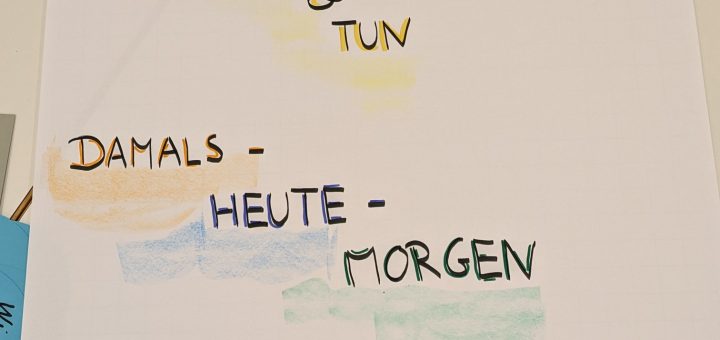 TUN
DAMALS -
HEUTE -
MORGEN